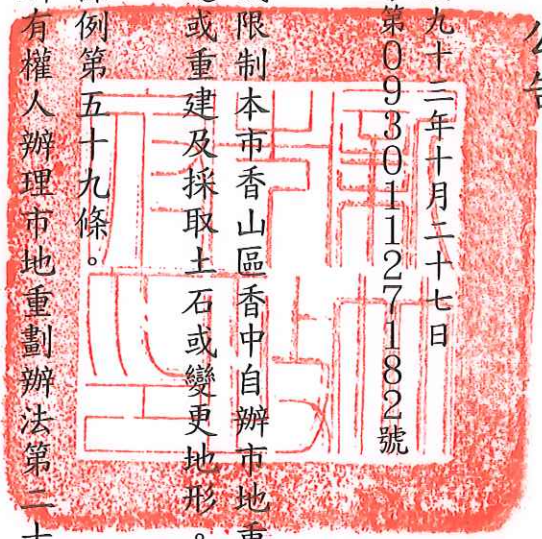 公告
九十三年十月二十七日
第09301127182號
限制本市香山區香中自辦市地重
或重建及採取土石或變更地形。
例第五十九條。
有權人辦理市地重劃辦法第二十